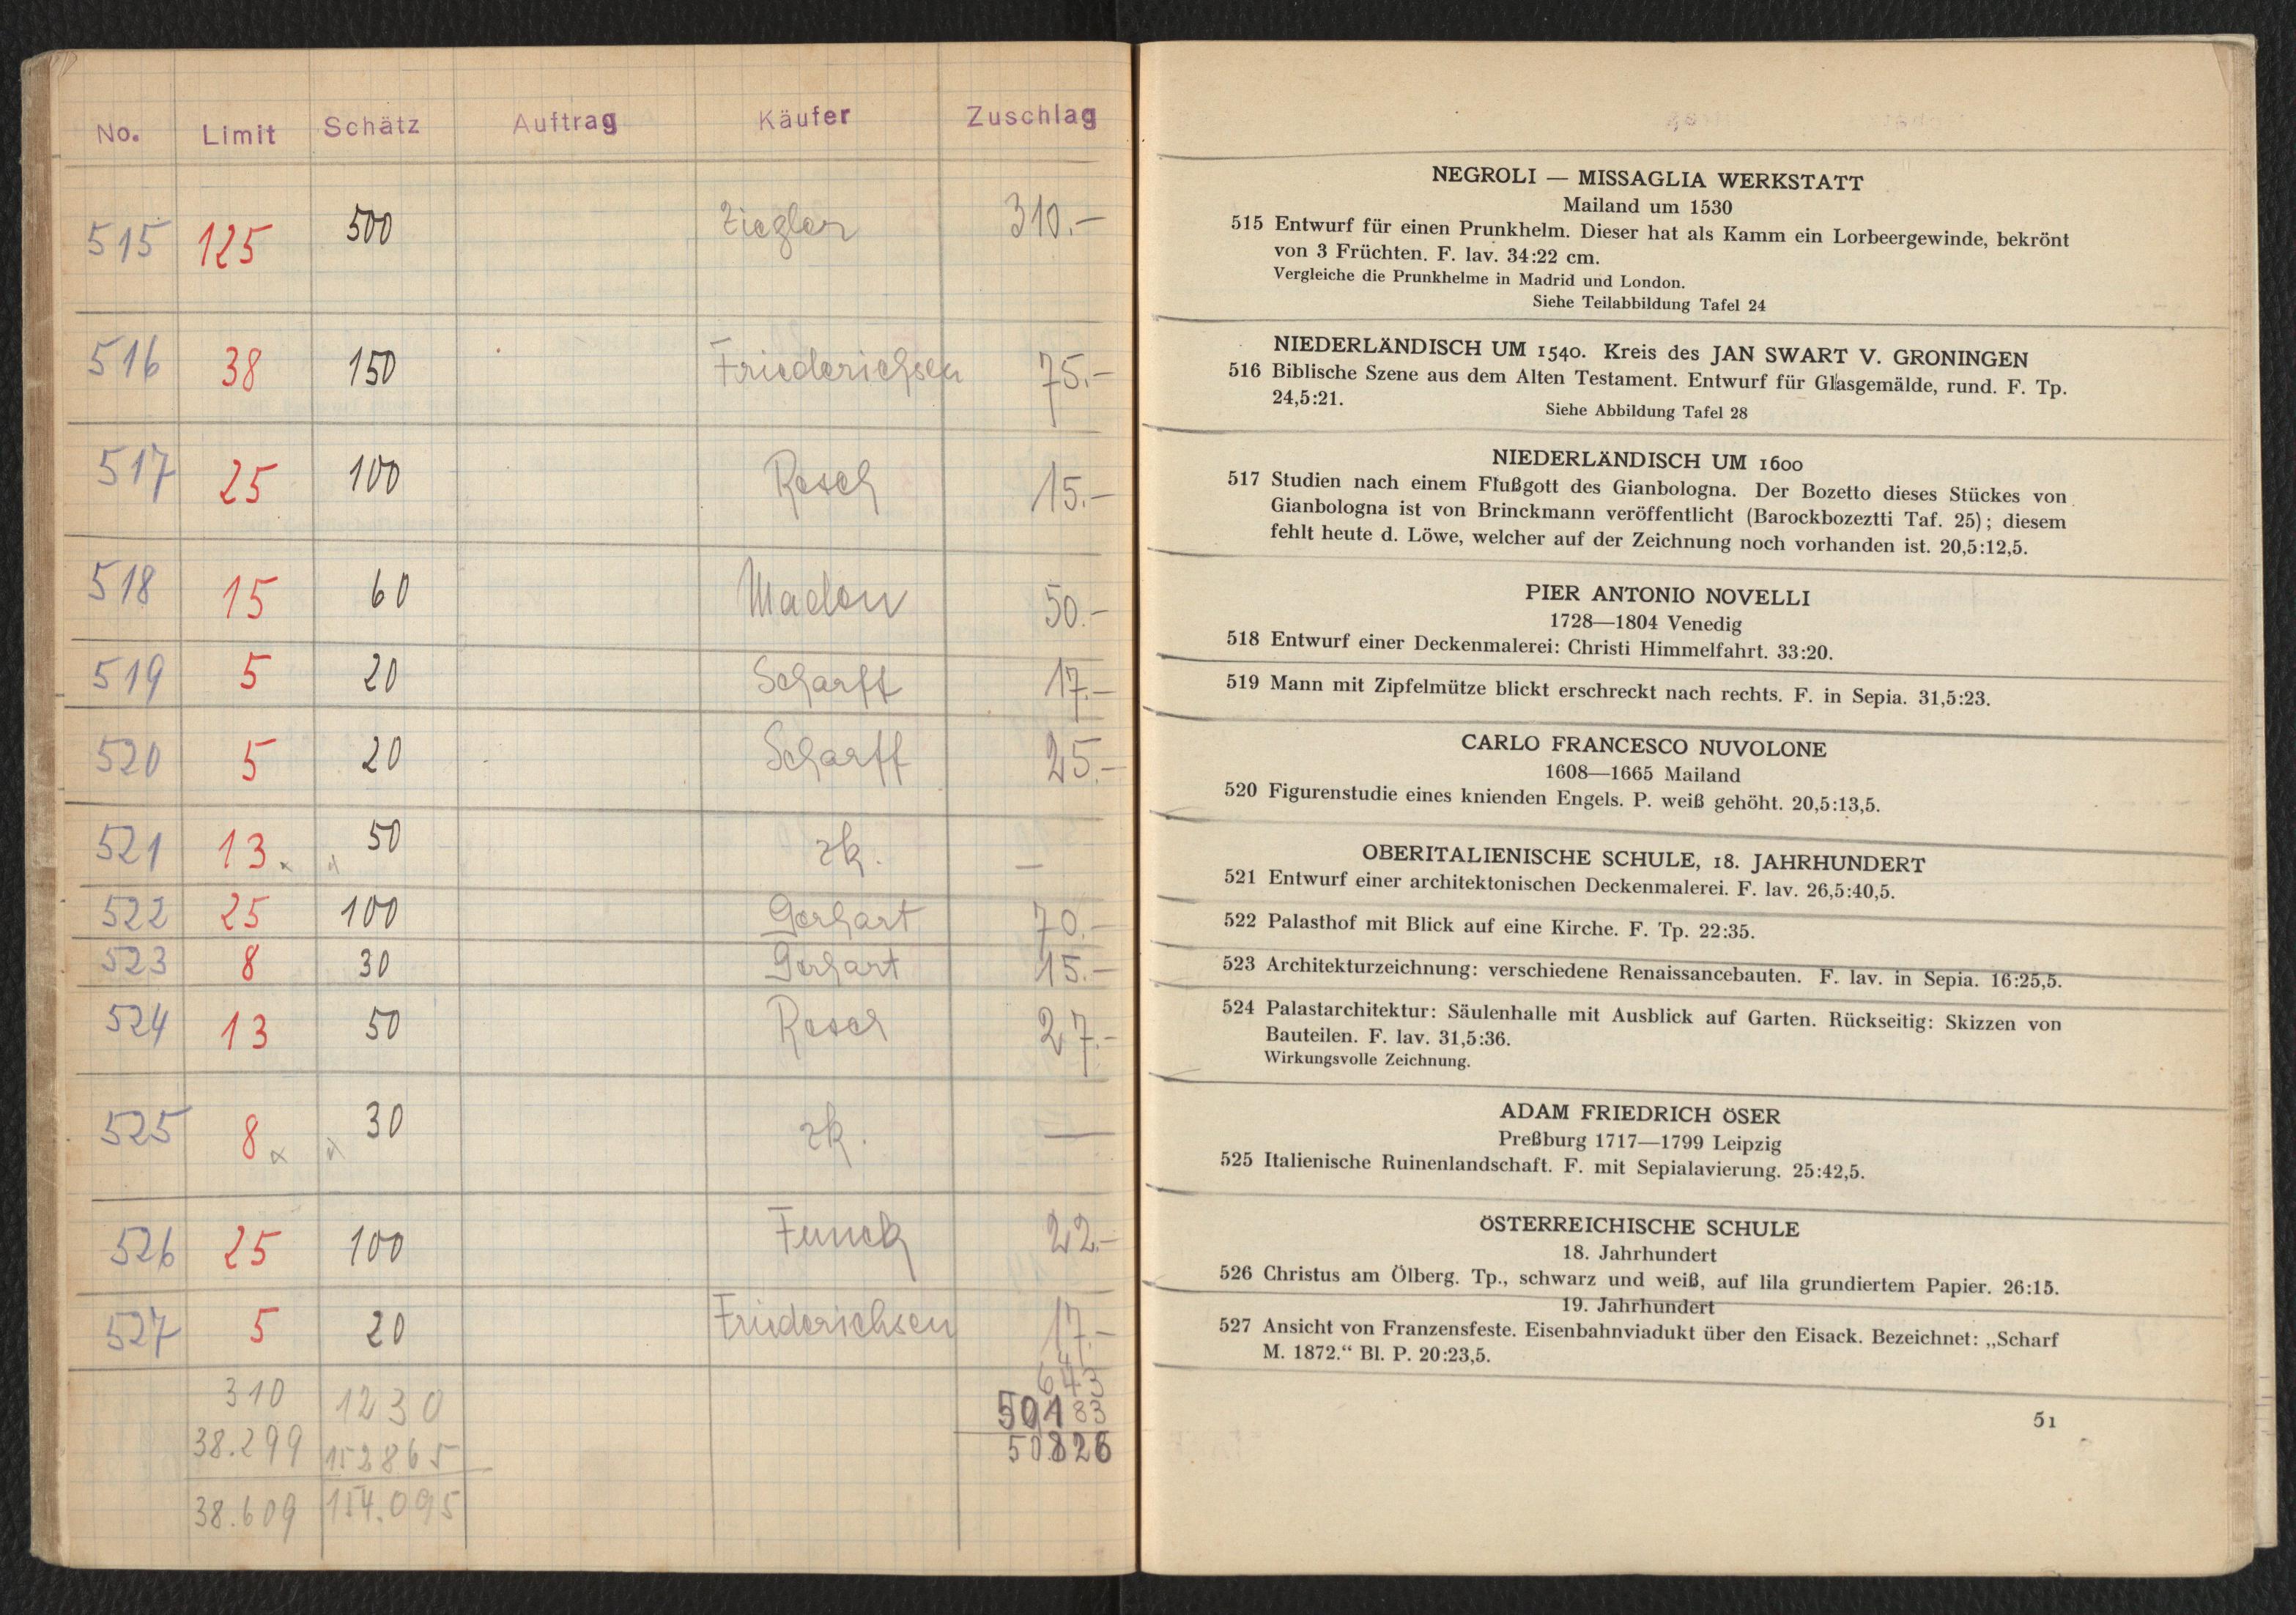 No. Limit Schätz Auftrag Käufer Zuschlag
515 125 500 Ziegler 310.-
516 38 150 Friederichsen 75.-
517 25 100 Resch 15.-
518 15 60 50.-
519 5 20 Scharff 17.-
520 5 20 Scharff 25.-
521 13 50 zk. —
522 25 100 Gerhart 70.-
523 8 30 Gerhart 15.-
524 13 50 Resch 27.-
525 8 30 zk. —
526 25 100 Funck 22.-
527 5 20 Friederichsen 17.-
310 1230 643
38.299 152865 50183
38.609 154.095 50.826
NEGROLI — MISSAGLIA WERKSTATT
Mailand um 1530
515 Entwurf für einen Prunkhelm. Dieser hat als Kamm ein Lorbeergewinde, bekrönt
von 3 Früchten. F. lav. 34:22 cm.
Vergleiche die Prunkhelme in Madrid und London.
Siehe Teilabbildung Tafel 24
NIEDERLÄNDISCH UM 1540. Kreis des JAN SWART V. GRONINGEN
516 Biblische Szene aus dem Alten Testament. Entwurf für Glasgemälde, rund. F. Tp.
24,5:21.
Siehe Abbildung Tafel 28
NIEDERLÄNDISCH UM 1600
517 Studien nach einem Flußgott des Gianbologna. Der Bozetto dieses Stückes von
Gianbologna ist von Brinckmann veröffentlicht (Barockbozeztti Taf. 25); diesem
fehlt heute d. Löwe, welcher auf der Zeichnung noch vorhanden ist. 20,5:12,5.
PIER ANTONIO NOVELLI
1728—1804 Venedig
518 Entwurf einer Deckenmalerei: Christi Himmelfahrt. 33:20.
519 Mann mit Zipfelmütze blickt erschreckt nach rechts. F. in Sepia. 31,5:23.
CARLO FRANCESCO NUVOLONE
1608—1665 Mailand
520 Figurenstudie eines knienden Engels. P. weiß gehöht. 20,5:13,5.
OBERITALIENISCHE SCHULE, 18. JAHRHUNDERT
521 Entwurf einer architektonischen Deckenmalerei. F. lav. 26,5:40,5.
522 Palasthof mit Blick auf eine Kirche. F. Tp. 22:35.
523 Architekturzeichnung: verschiedene Renaissancebauten. F. lav. in Sepia. 16:25,5.
524 Palastarchitektur: Säulenhalle mit Ausblick auf Garten. Rückseitig: Skizzen von
Bauteilen. F. lav. 31,5:36.
Wirkungsvolle Zeichnung.
ADAM FRIEDRICH ÖSER
Preßburg 1717—1799 Leipzig
525 Italienische Ruinenlandschaft. F. mit Sepialavierung. 25:42,5.
ÖSTERREICHISCHE SCHULE
18. Jahrhundert
526 Christus am Ölberg. Tp., schwarz und weiß, auf lila grundiertem Papier. 26:15.
19. Jahrhundert
527 Ansicht von Franzensfeste. Eisenbahnviadukt über den Eisack. Bezeichnet: „Scharf
M. 1872.“ Bl. P. 20:23,5.
51